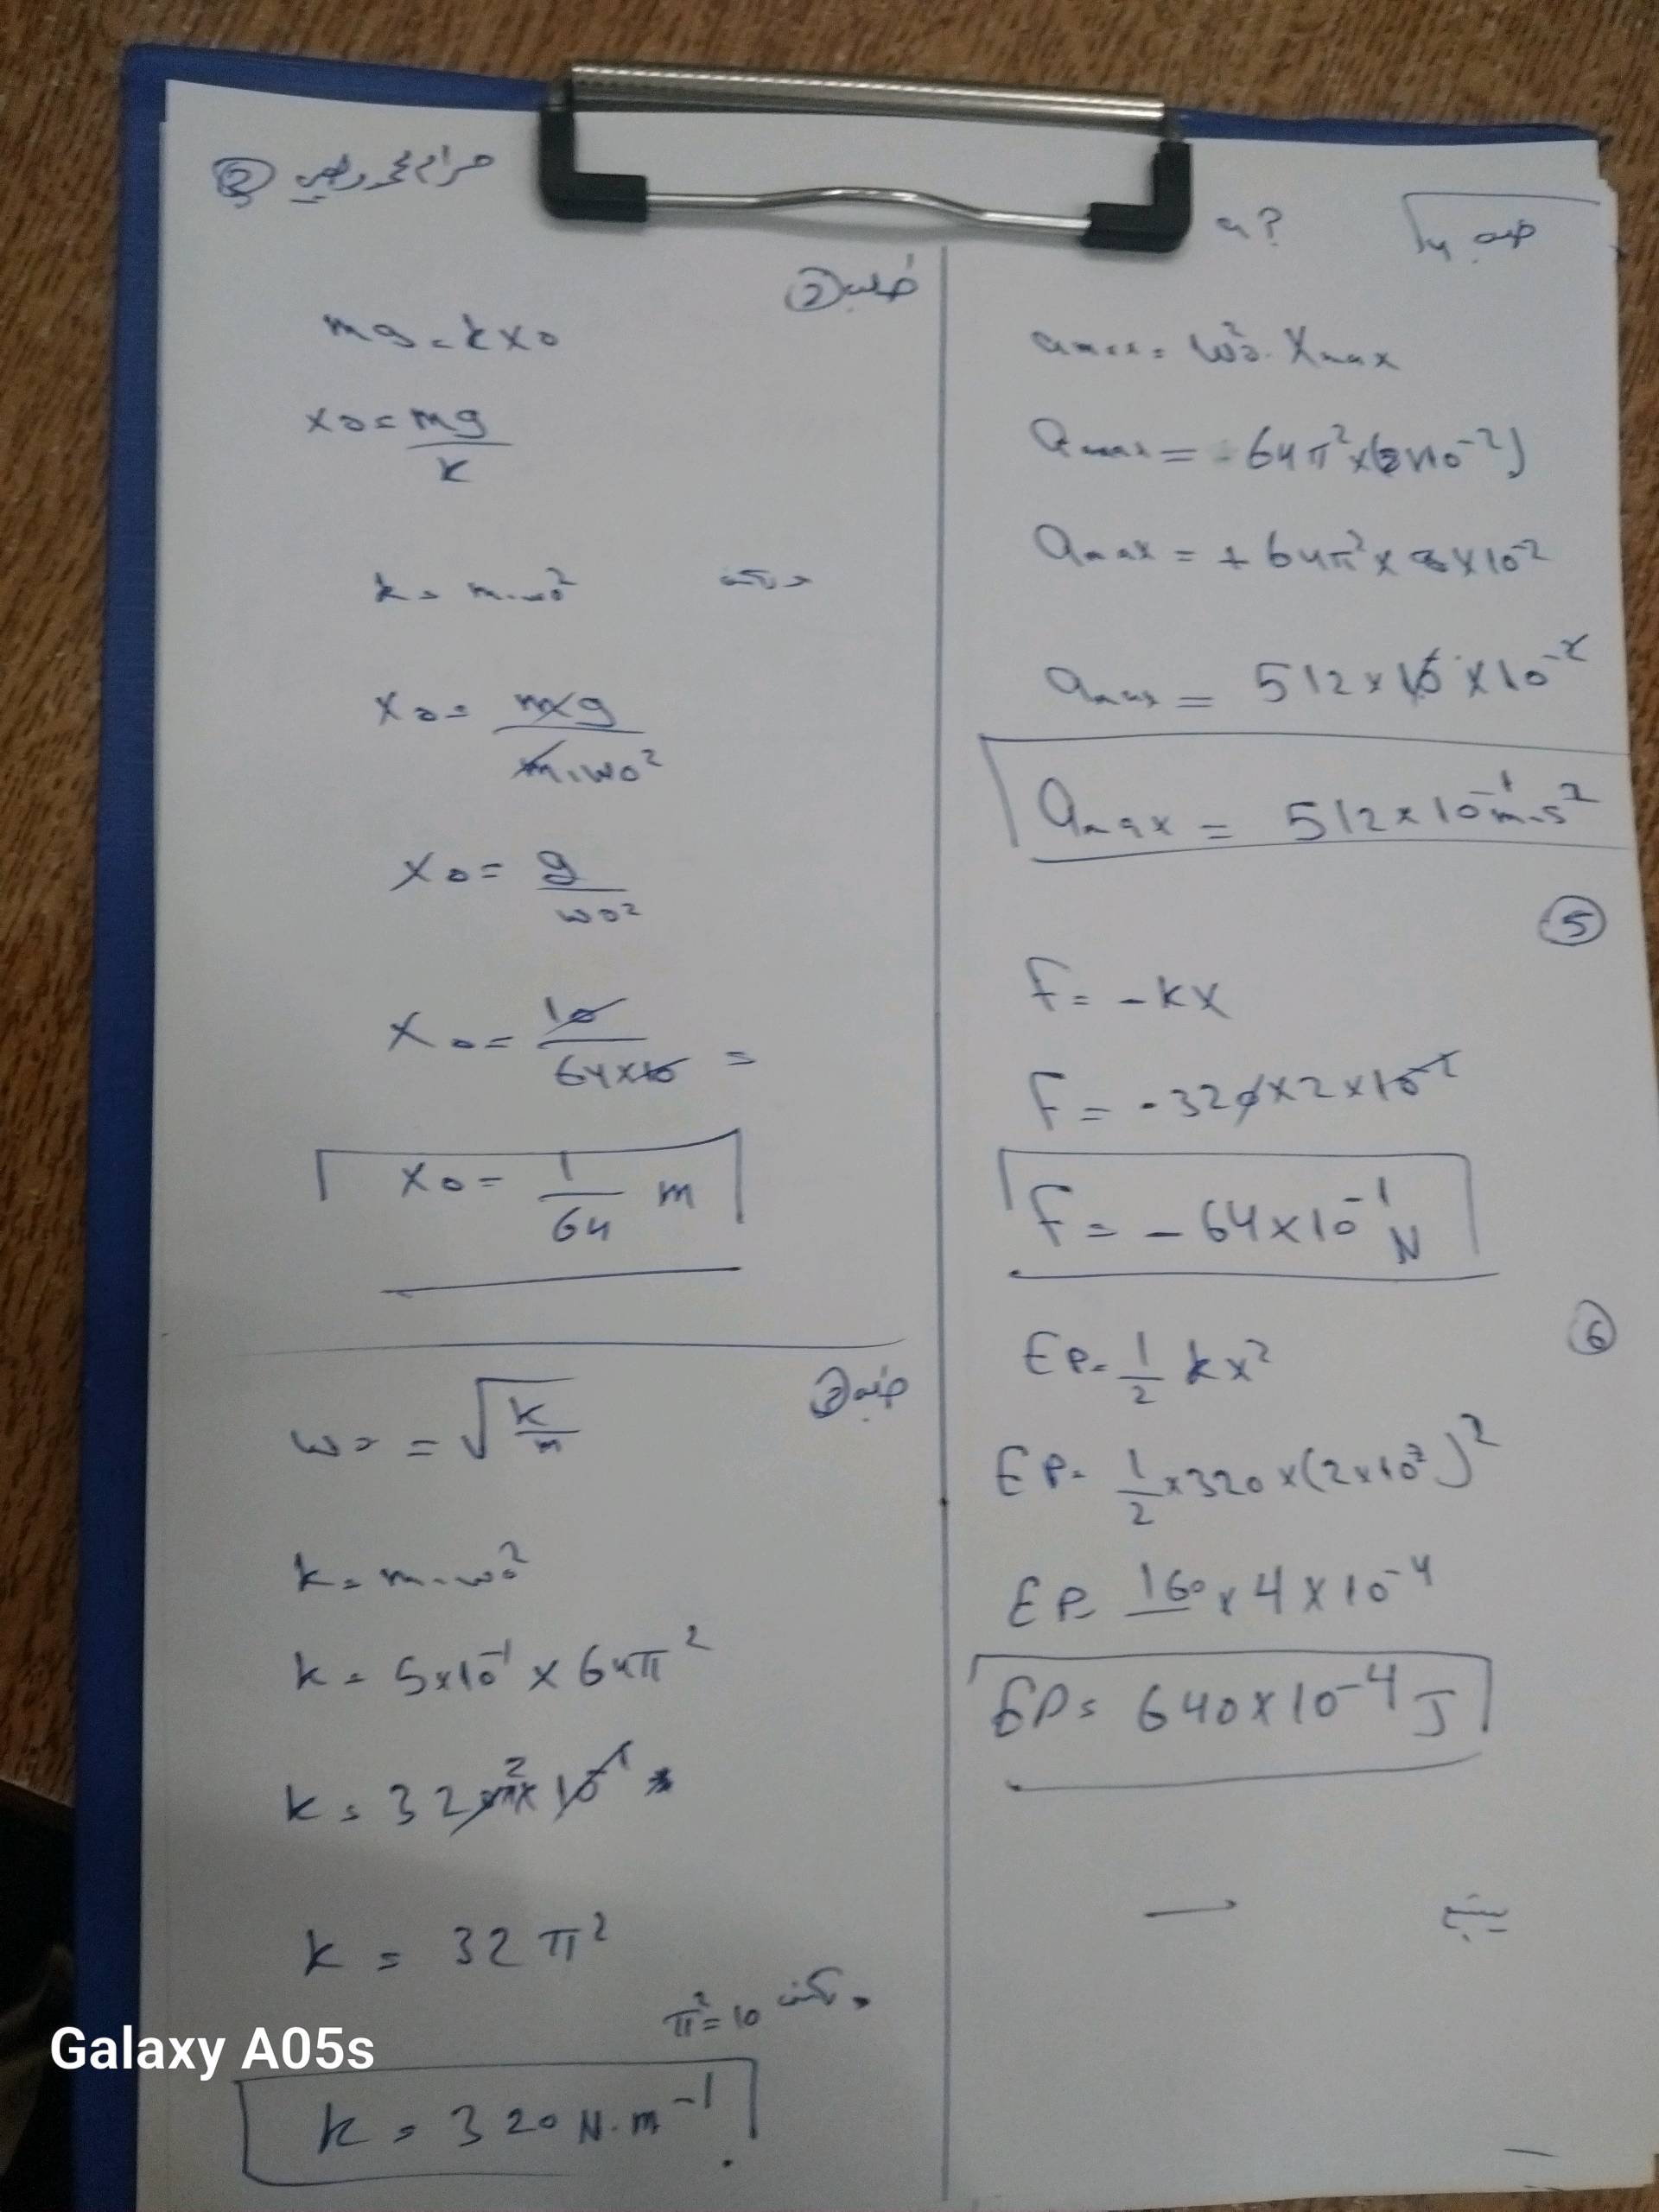 ②
طلب ②
mg = kx0
x0 = mg/k
k = m.ω0²
x0 = mg/m.ω0²
x0 = g/ω0²
x0 = 10/64×10 =
x0 = 1/64 m
طلب ③
ω0 = √k/m
k = m.ω0²
k = 5×10⁻¹ × 64π²
k = 320π² × 10⁻¹
k = 32π²
π² = 10
k = 320 N.m⁻¹
a? طلب 4
amax = ω0². Xmax
amax = -64π²×(8×10⁻²)
amax = + 64π² × 8×10⁻²
amax = 512 × 10 × 10⁻²
amax = 512 × 10⁻¹ m.s²
⑤
F = -kx
F = -320×2×10⁻²
F = -64×10⁻¹ N
⑥
EP = 1/2 kx²
EP = 1/2 ×320×(2×10⁻²)²
EP = 160 × 4 × 10⁻⁴
EP = 640×10⁻⁴ J
يتبع
Galaxy A05s